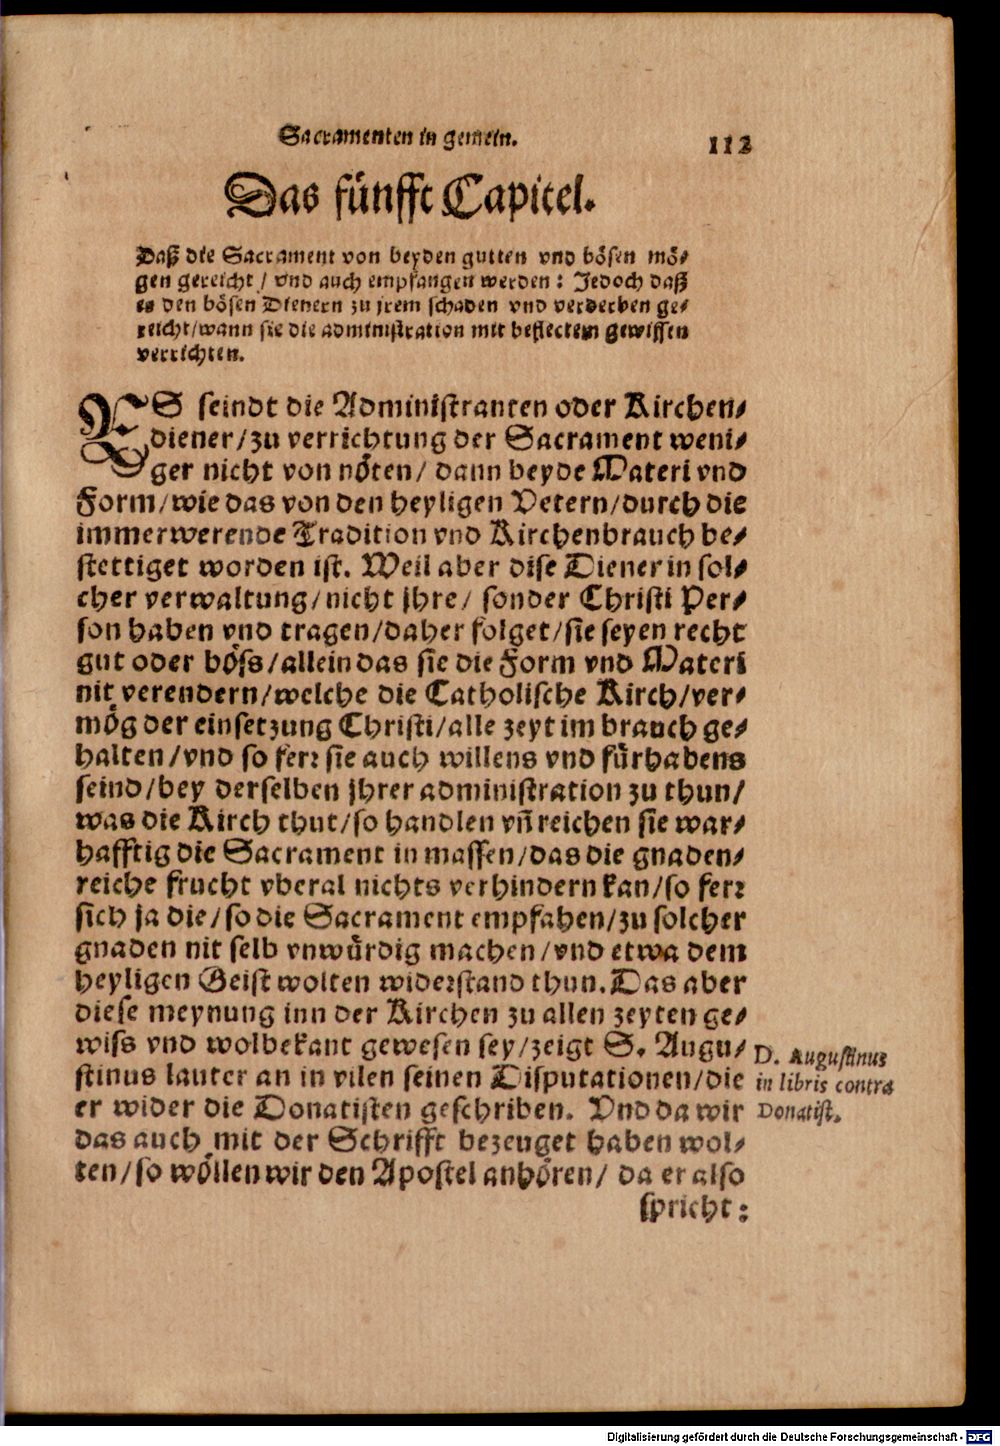 Sacramenten in gemein. 112
Das fünfft Capitel.
Daß die Sacrament von beyden gutten vnd bösen mö⸗
gen gereicht / vnd auch empfangen werden: Jedoch daß
es den bösen Dienern zu jrem schaden vnd verderben ge⸗
reicht/wann sie die administration mit beflectem gewissen
verrichten.
ES seindt die Administranten oder Kirchen⸗
diener/zu verrichtung der Sacrament weni⸗
ger nicht von nöten/ dann beyde Materi vnd
Form/wie das von den heyligen Vetern/durch die
immerwerende Tradition vnd Kirchenbrauch be⸗
stettiget worden ist. Weil aber dise Diener in sol⸗
cher verwaltung/nicht jhre/ sonder Christi Per⸗
son haben vnd tragen/daher folget/sie seyen recht
gut oder böss/allein das sie die Form vnd Materi
nit verendern/welche die Catholische Kirch/ver⸗
mög der einsetzung Christi/alle zeyt im brauch ge⸗
halten/vnd so ferr sie auch willens vnd fürhabens
seind/bey derselben jhrer administration zu thun/
was die Kirch thut/so handlen vñ reichen sie war⸗
hafftig die Sacrament in massen/das die gnaden⸗
reiche frucht vberal nichts verhindern kan/so ferr
sich ja die/so die Sacrament empfahen/zu solcher
gnaden nit selb vnwürdig machen/vnd etwa dem
heyligen Geist wolten widerstand thun. Das aber
diese meynung inn der Kirchen zu allen zeyten ge⸗
wiss vnd wolbekant gewesen sey/zeigt S. Augu⸗
stinus lauter an in vilen seinen Disputationen/die
er wider die Donatisten geschriben. Vnd da wir
das auch mit der Schrifft bezeuget haben wol⸗
ten/so wöllen wir den Apostel anhören/ da er also
spricht:
D. Augustinus
in libris contra
Donatist.
Digitalisierung gefördert durch die Deutsche Forschungsgemeinschaft - DFG